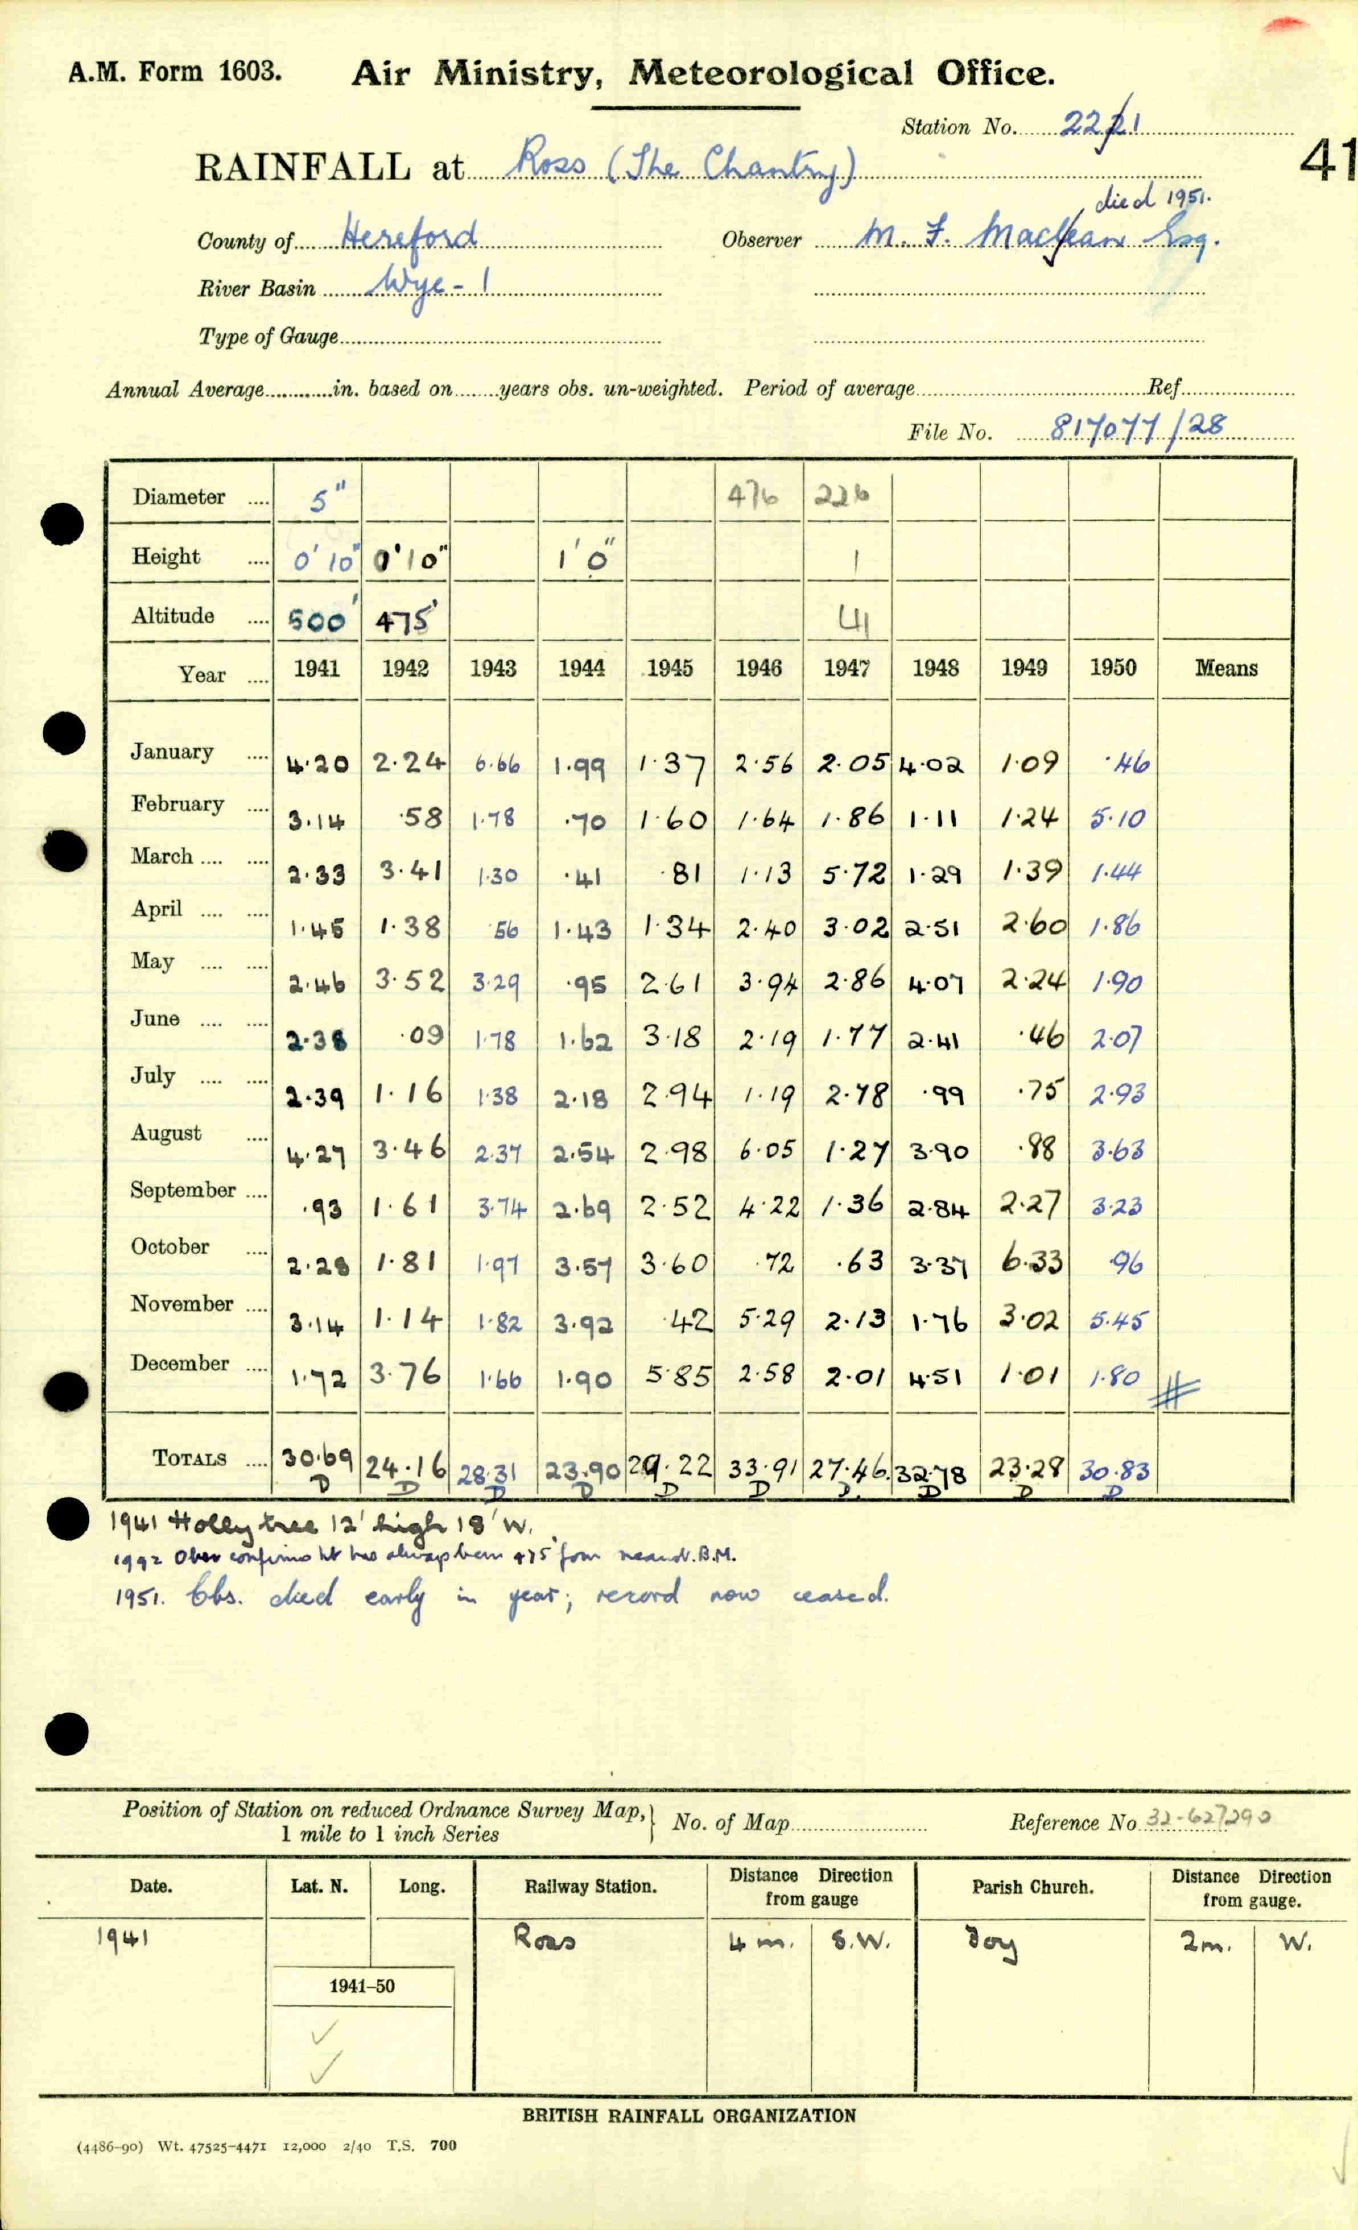 A.M. Form 1603. Air Ministry, Meteorological Office.
Station No. 2221
41
RAINFALL at Ross (The Chantry)
died 1951.
County of Hereford Observer M. F. Maclean Esq.
River Basin Wye - 1
Type of Gauge
Annual Average in. based on years obs. un-weighted. Period of average Ref.
File No. 817077/28
Diameter 5" 476 226
Height 0' 10" 0' 10" 1' 0" 1
Altitude 500' 475' 41
Year 1941 1942 1943 1944 1945 1946 1947 1948 1949 1950 Means
January 4.20 2.24 6.66 1.99 1.37 2.56 2.05 4.02 1.09 .46
February 3.14 .58 1.78 .70 1.60 1.64 1.86 1.11 1.24 5.10
March 2.33 3.41 1.30 .41 .81 1.13 5.72 1.29 1.39 1.44
April 1.45 1.38 56 1.43 1.34 2.40 3.02 2.51 2.60 1.86
May 2.46 3.52 3.29 .95 2.61 3.94 2.86 4.07 2.24 1.90
June 2.38 .09 1.78 1.62 3.18 2.19 1.77 2.41 .46 2.07
July 2.39 1.16 1.38 2.18 2.94 1.19 2.78 .99 .75 2.93
August 4.27 3.46 2.37 2.54 2.98 6.05 1.27 3.90 .88 3.63
September .93 1.61 3.74 2.69 2.52 4.22 1.36 2.84 2.27 3.23
October 2.28 1.81 1.97 3.57 3.60 .72 .63 3.37 6.33 .96
November 3.14 1.14 1.82 3.92 .42 5.29 2.13 1.76 3.02 5.45
December 1.72 3.76 1.66 1.90 5.85 2.58 2.01 4.51 1.01 1.80
TOTALS 30.69 24.16 28.31 23.90 29.22 33.91 27.46 32.78 23.28 30.83
D D D D D D D D D D
1941 Holly tree 12' high 18' W.
1942 Obser confirms ht has always been 475' from B.M.
1951. Obs. died early in year; record now ceased.
Position of Station on reduced Ordnance Survey Map, 1 mile to 1 inch Series No. of Map Reference No 32-627290
Date. Lat. N. Long. Railway Station. Distance Direction from gauge Parish Church. Distance Direction from gauge.
1941 Ross 4 m. S.W. Foy 2m. W.
1941–50
BRITISH RAINFALL ORGANIZATION
(4486-90) Wt. 47525-4471 12,000 2/40 T.S. 700